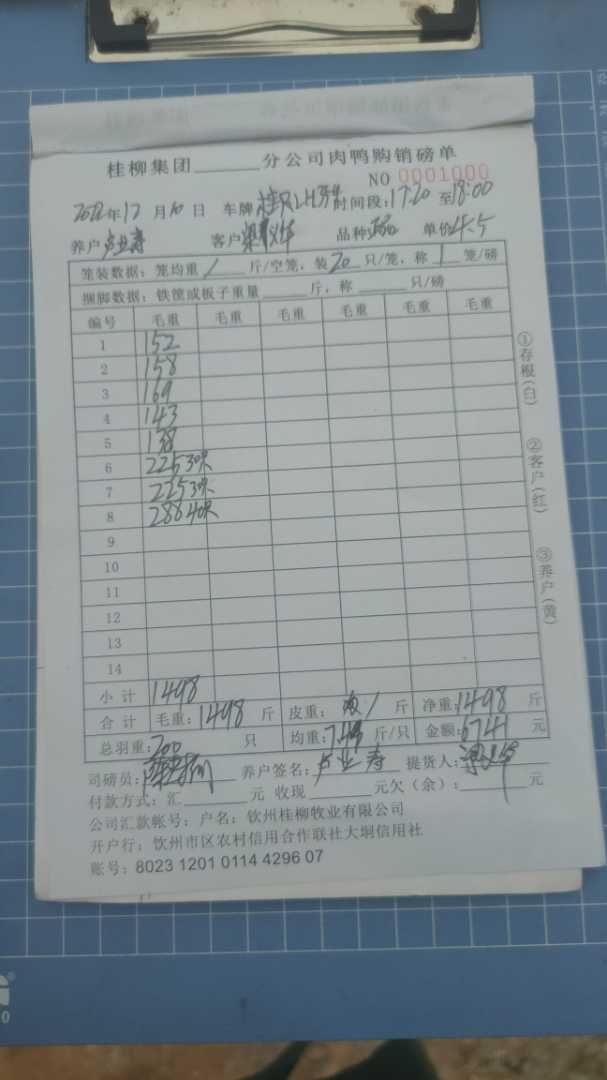 桂柳集团______分公司肉鸭购销磅单
NO 0001000
2022年12月10日 车牌 时间段:17:20至18:00
养户卢业寿 客户 品种 单价4.5
笼装数据:笼均重/斤/空笼,装20只/笼,称1笼/磅
捆脚数据:铁筐或板子重量______斤,称______只/磅
编号 毛重 毛重 毛重 毛重 毛重 毛重
1 152
2 158
3 169
4 143
5 138
6 225 30只
7 225 30只
8 288 40只
9
10
11
12
13
14
小计 1498
合计 毛重:1498斤 皮重: / 斤 净重:1498斤
总羽重:200只 均重:7.49斤/只 金额:6741元
司磅员: 养户签名:卢业寿 提货人:
付款方式:汇______元 收现______元欠(余):______元
公司汇款帐号:户名:钦州桂柳牧业有限公司
开户行:钦州市区农村信用合作联社大垌信用社
账号:8023 1201 0114 4296 07
①存根(白)
②客户(红)
③养户(黄)